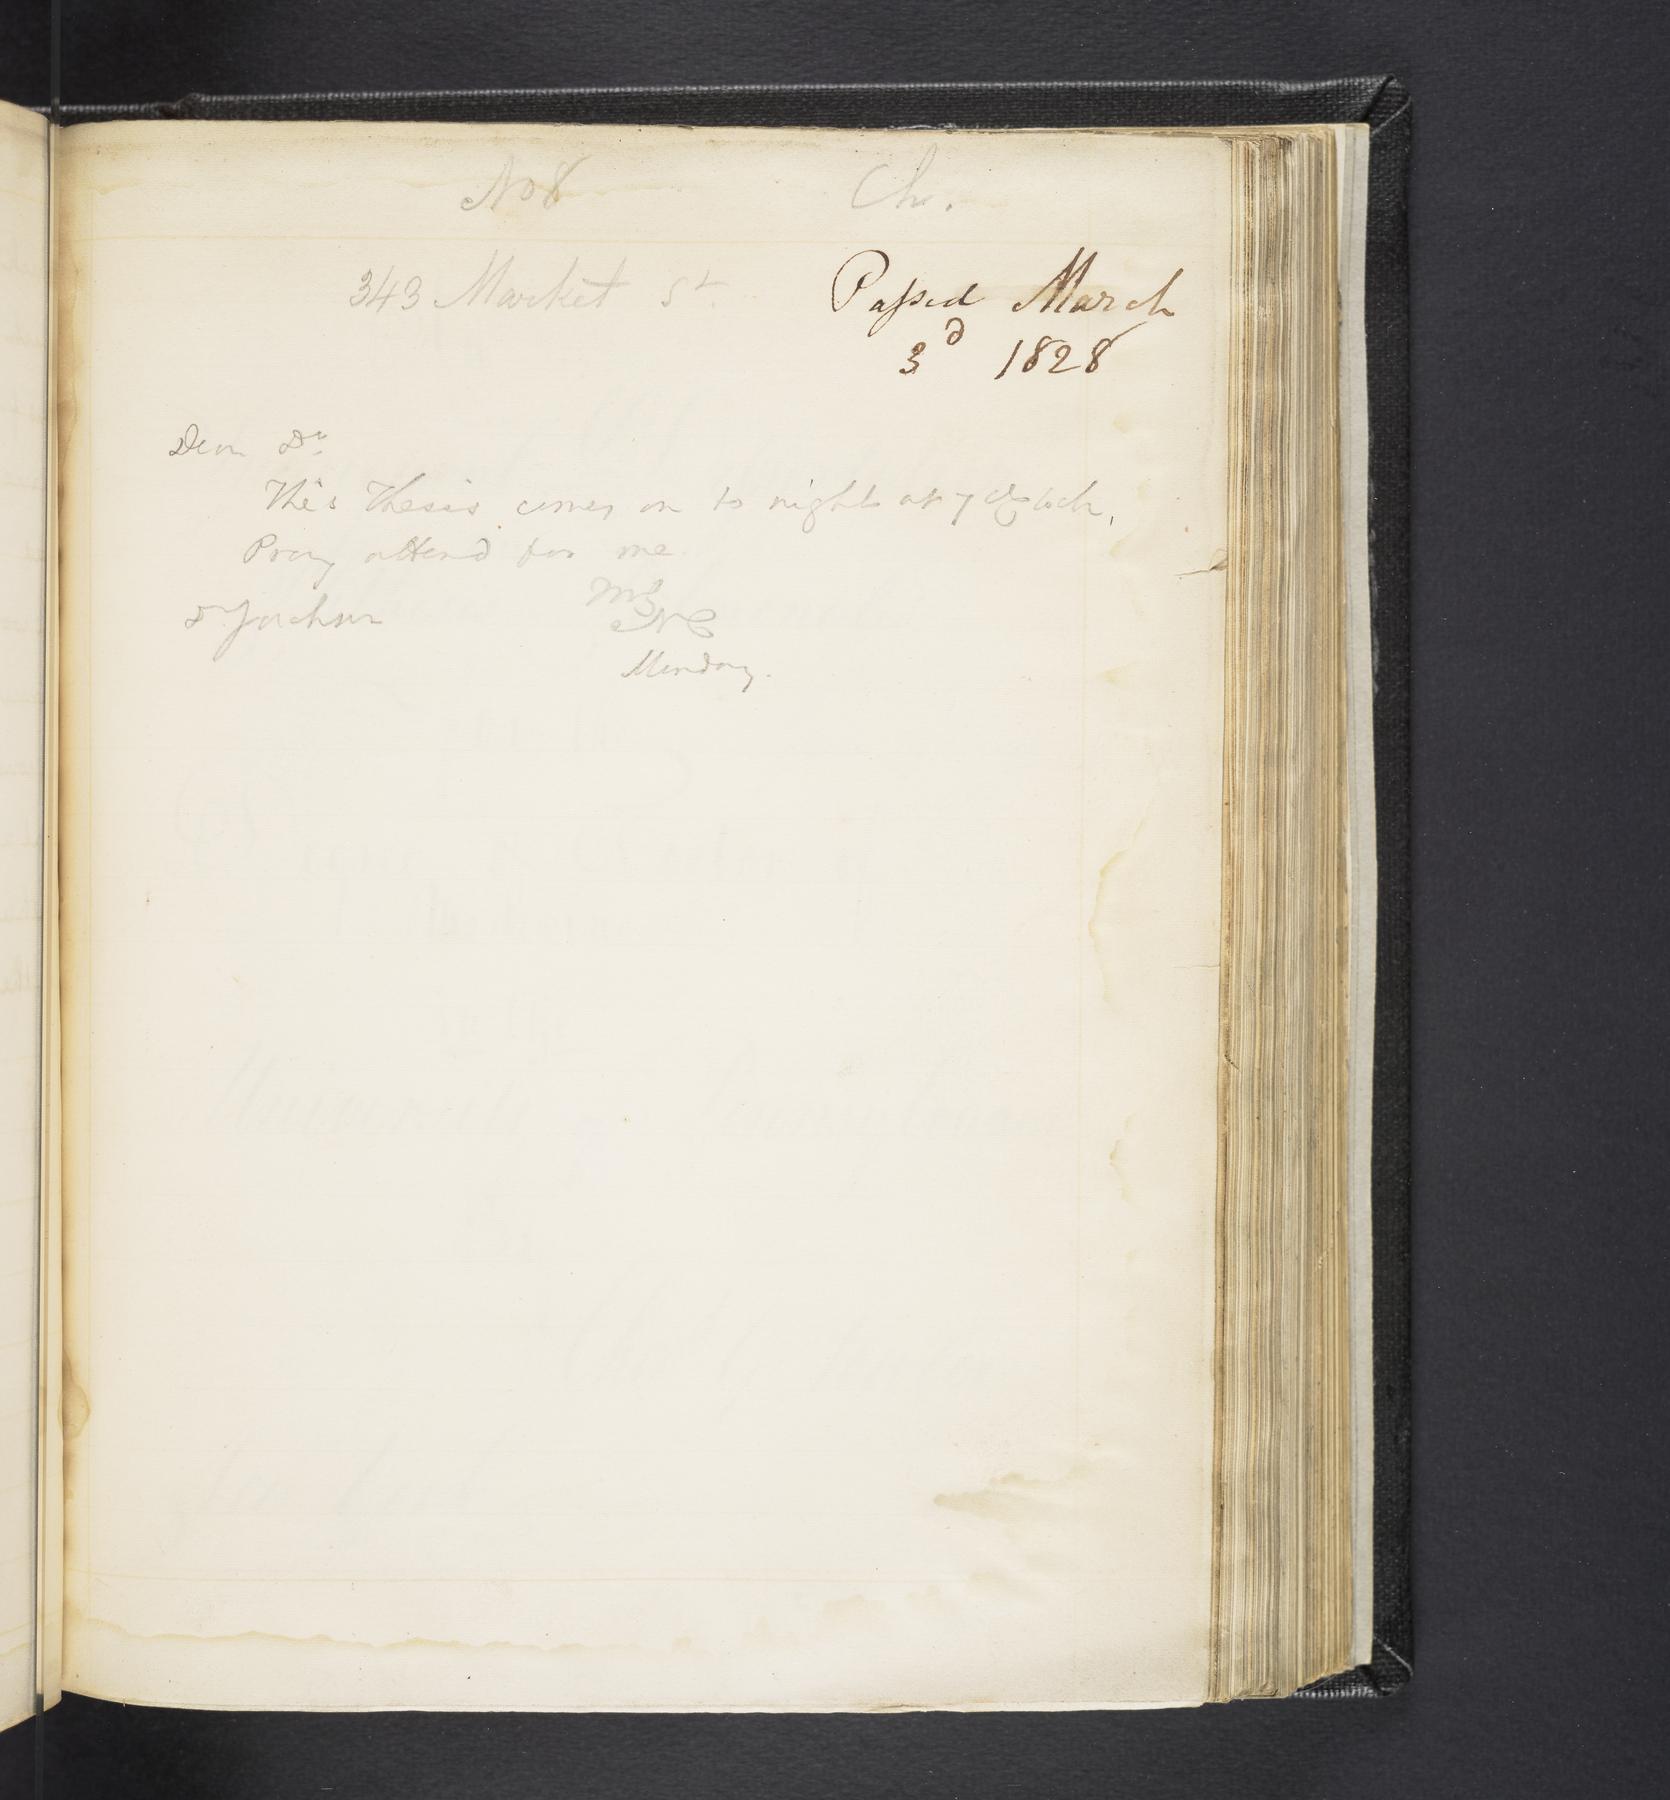 No 8 Ch.
343 Market St.
Passed March
3d 1828
Dear Dr.
This Thesis comes on to night at 7 oClock.
Pray attend for me
Dr Jackson
NC
Monday.